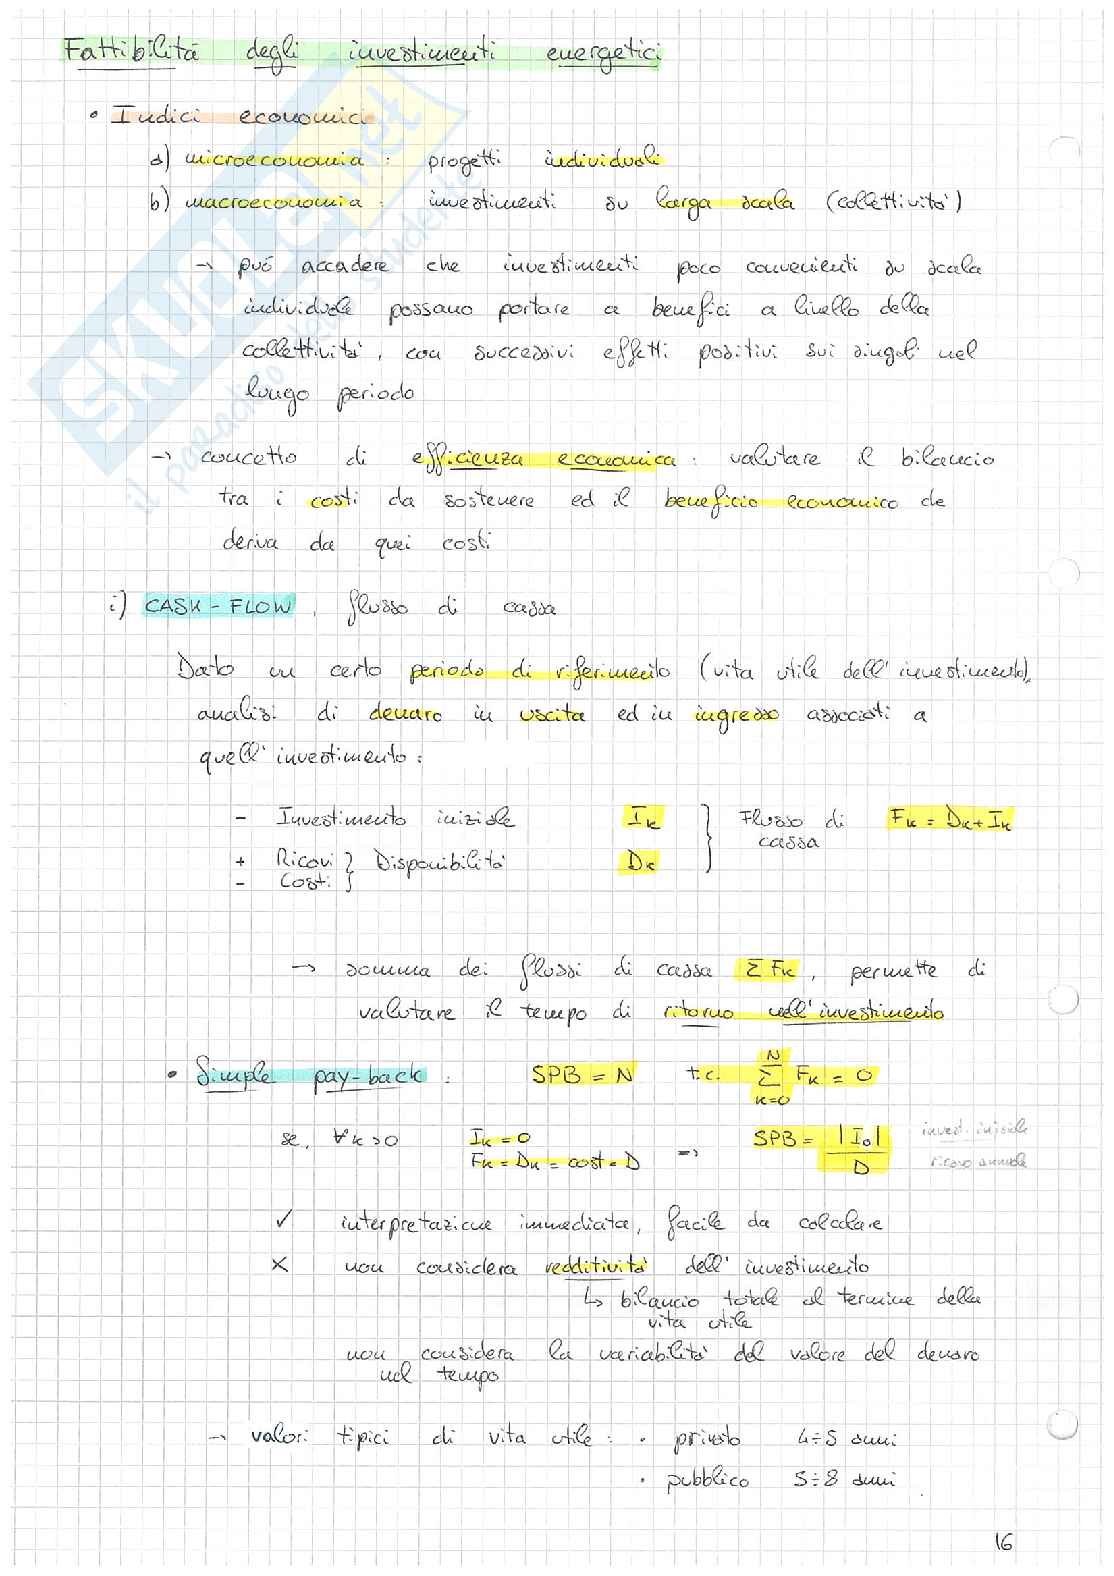 Fattibilità degli investimenti energetici
• Indici economici
a) microeconomia : progetti individuali
b) macroeconomia : investimenti su larga scala (collettività)
→ può accadere che investimenti poco convenienti su scala
individuale possano portare a benefici a livello della
collettività, con successivi effetti positivi sui singoli nel
lungo periodo
→ concetto di efficienza economica : valutare il bilancio
tra i costi da sostenere ed il beneficio economico che
deriva da quei costi
i) CASH - FLOW, flusso di cassa
Dato un certo periodo di riferimento (vita utile dell'investimento),
analisi di denaro in uscita ed in ingresso associati a
quell'investimento :
- Investimento iniziale Ik } Flusso di cassa Fk = Dk + Ik
+ Ricavi } Disponibilità Dk
- Costi }
→ somma dei flussi di cassa Σ Fk, permette di
valutare il tempo di ritorno nell'investimento
• Simple pay-back : SPB = N t.c. Σ(k=0→N) Fk = 0
se, ∀k>0 Ik = 0 Fk = Dk = cost = D ⇒ SPB = |I0| / D invest. iniziale / ricavo annuale
✓ interpretazione immediata, facile da calcolare
✗ non considera redditività dell'investimento
↳ bilancio totale al termine della
vita utile
non considera la variabilità del valore del denaro
nel tempo
→ valori tipici di vita utile : • privato 4÷5 anni
• pubblico 5÷8 anni
16
SKUOLA.net
il paradiso dello studente